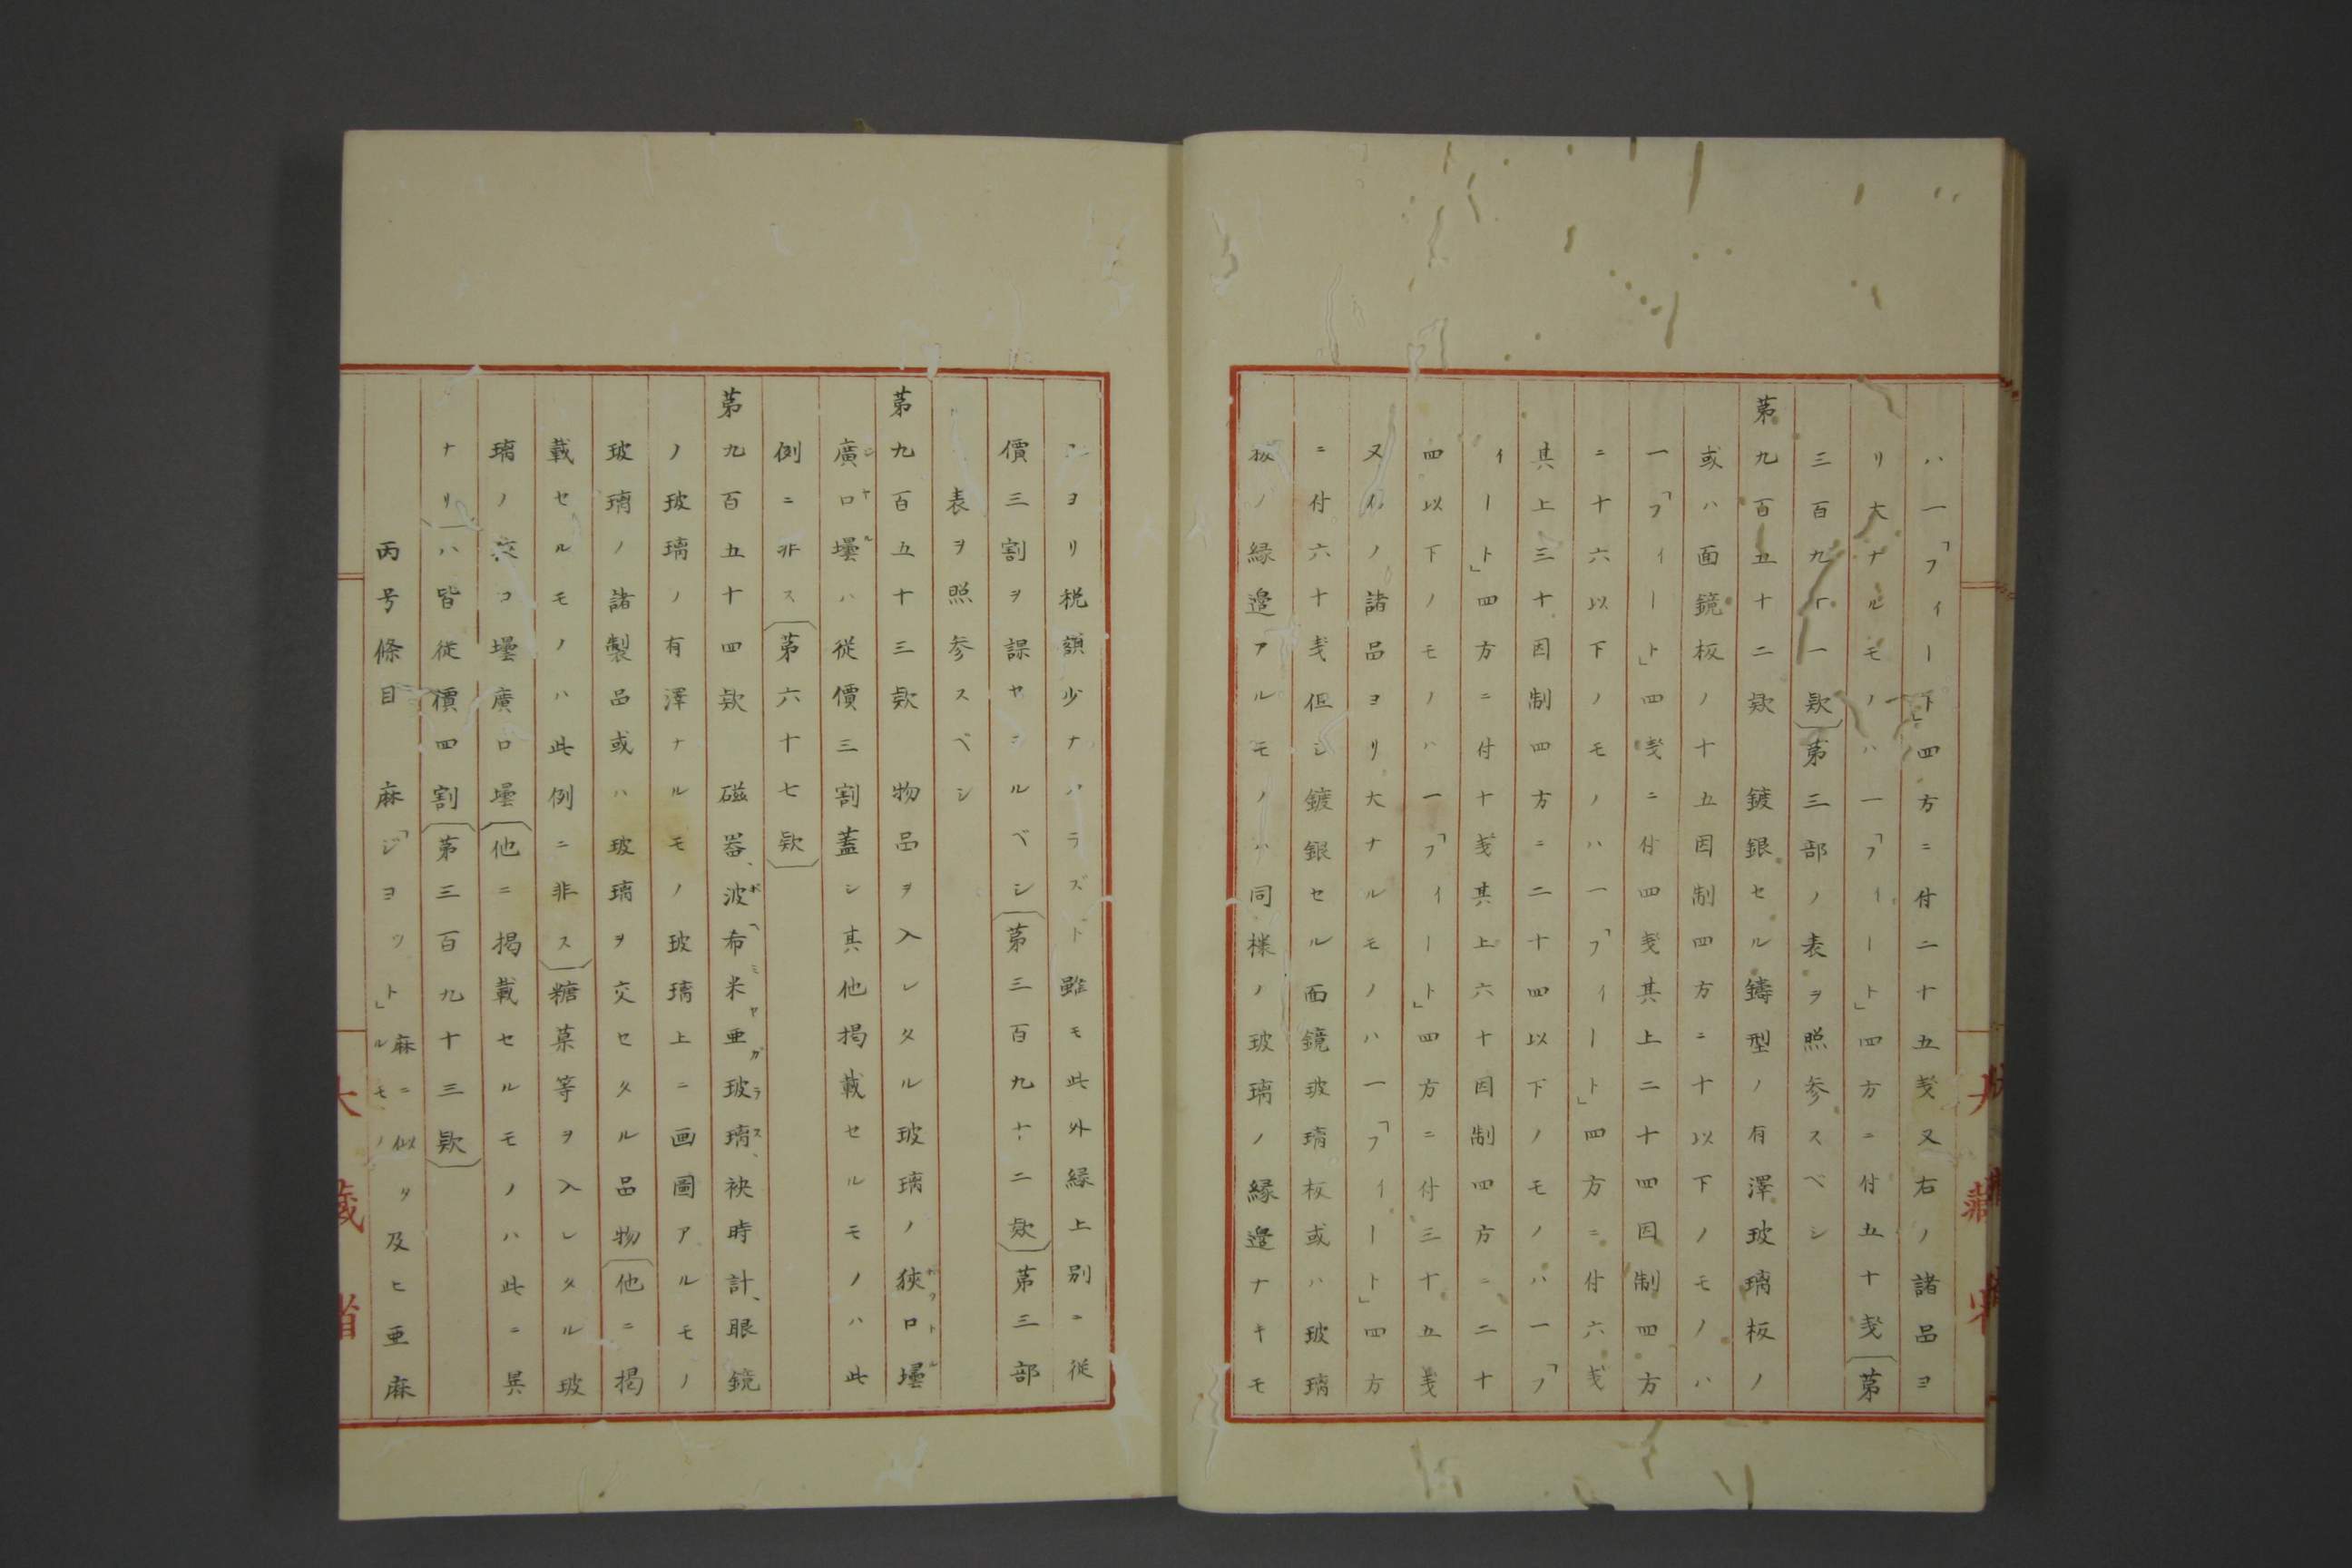 ハ一「フィート」四方ニ付二十五戔又右ノ諸品ヨ
リ大ナルモノハ一「フィート」四方ニ付五十戔(第
三百九十一款)第三部ノ表ヲ照参スベシ
第九百五十二款　鍍銀セル鑄型ノ有澤玻璃板ノ
或ハ面鏡板ノ十五因制四方ニ十以下ノモノハ
一「フィート」四戔ニ付四戔其上二十四因制四方
ニ十六以下ノモノハ一「フィート」四方ニ付六戔
其上三十因制四方ニ二十四以下ノモノハ一「フ
ィート」四方ニ付十戔其上六十因制四方ニ二十
四以下ノモノハ一「フィート」四方ニ付三十五戔
又仝ノ諸品ヨリ大ナルモノハ一「フィート」四方
ニ付六十戔但シ鍍銀セル面鏡玻璃板或ハ玻璃
板ノ縁邉アルモノハ同様ノ玻璃ノ縁邉ナキモ
ノヨリ税額少ナカラズト雖モ此外縁上別ニ従
價三割ヲ課セラルベシ(第三百九十二款)第三部
表ヲ照参スベシ
第九百五十三款　物品ヲ入レタル玻璃ノ狹口壜
廣口壜ハ従價三割蓋シ其他掲載セルモノハ此
例ニ非ス(第六十七款)
第九百五十四款　磁器、波布米亜玻璃、袂時計、眼鏡
ノ玻璃ノ有澤ナルモノ玻璃上ニ画圖アルモノ
玻璃ノ諸製品或ハ玻璃ヲ交セタル品物(他ニ掲
載セルモノハ此例ニ非ス)糖菓等ヲ入レタル玻
璃ノ狹口壜廣口壜(他ニ掲載セルモノハ此ニ異
ナリ)ハ皆従價四割(第三百九十三款)
丙号條目　麻「ジヨツト」麻ニ似タルモノ及ヒ亜麻
大藏省
大藏省